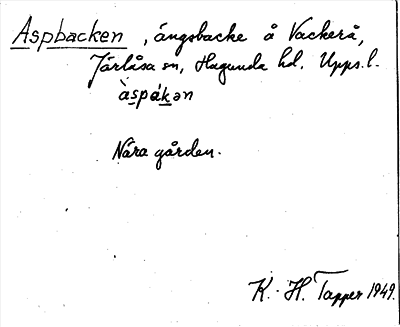 Aspbacken, ängsbacke å Vackerå,
Järlåsa sn, Hagunda hd. Upps.l.
àspákən
Nära gården.
K.-H. Tapper 1949.